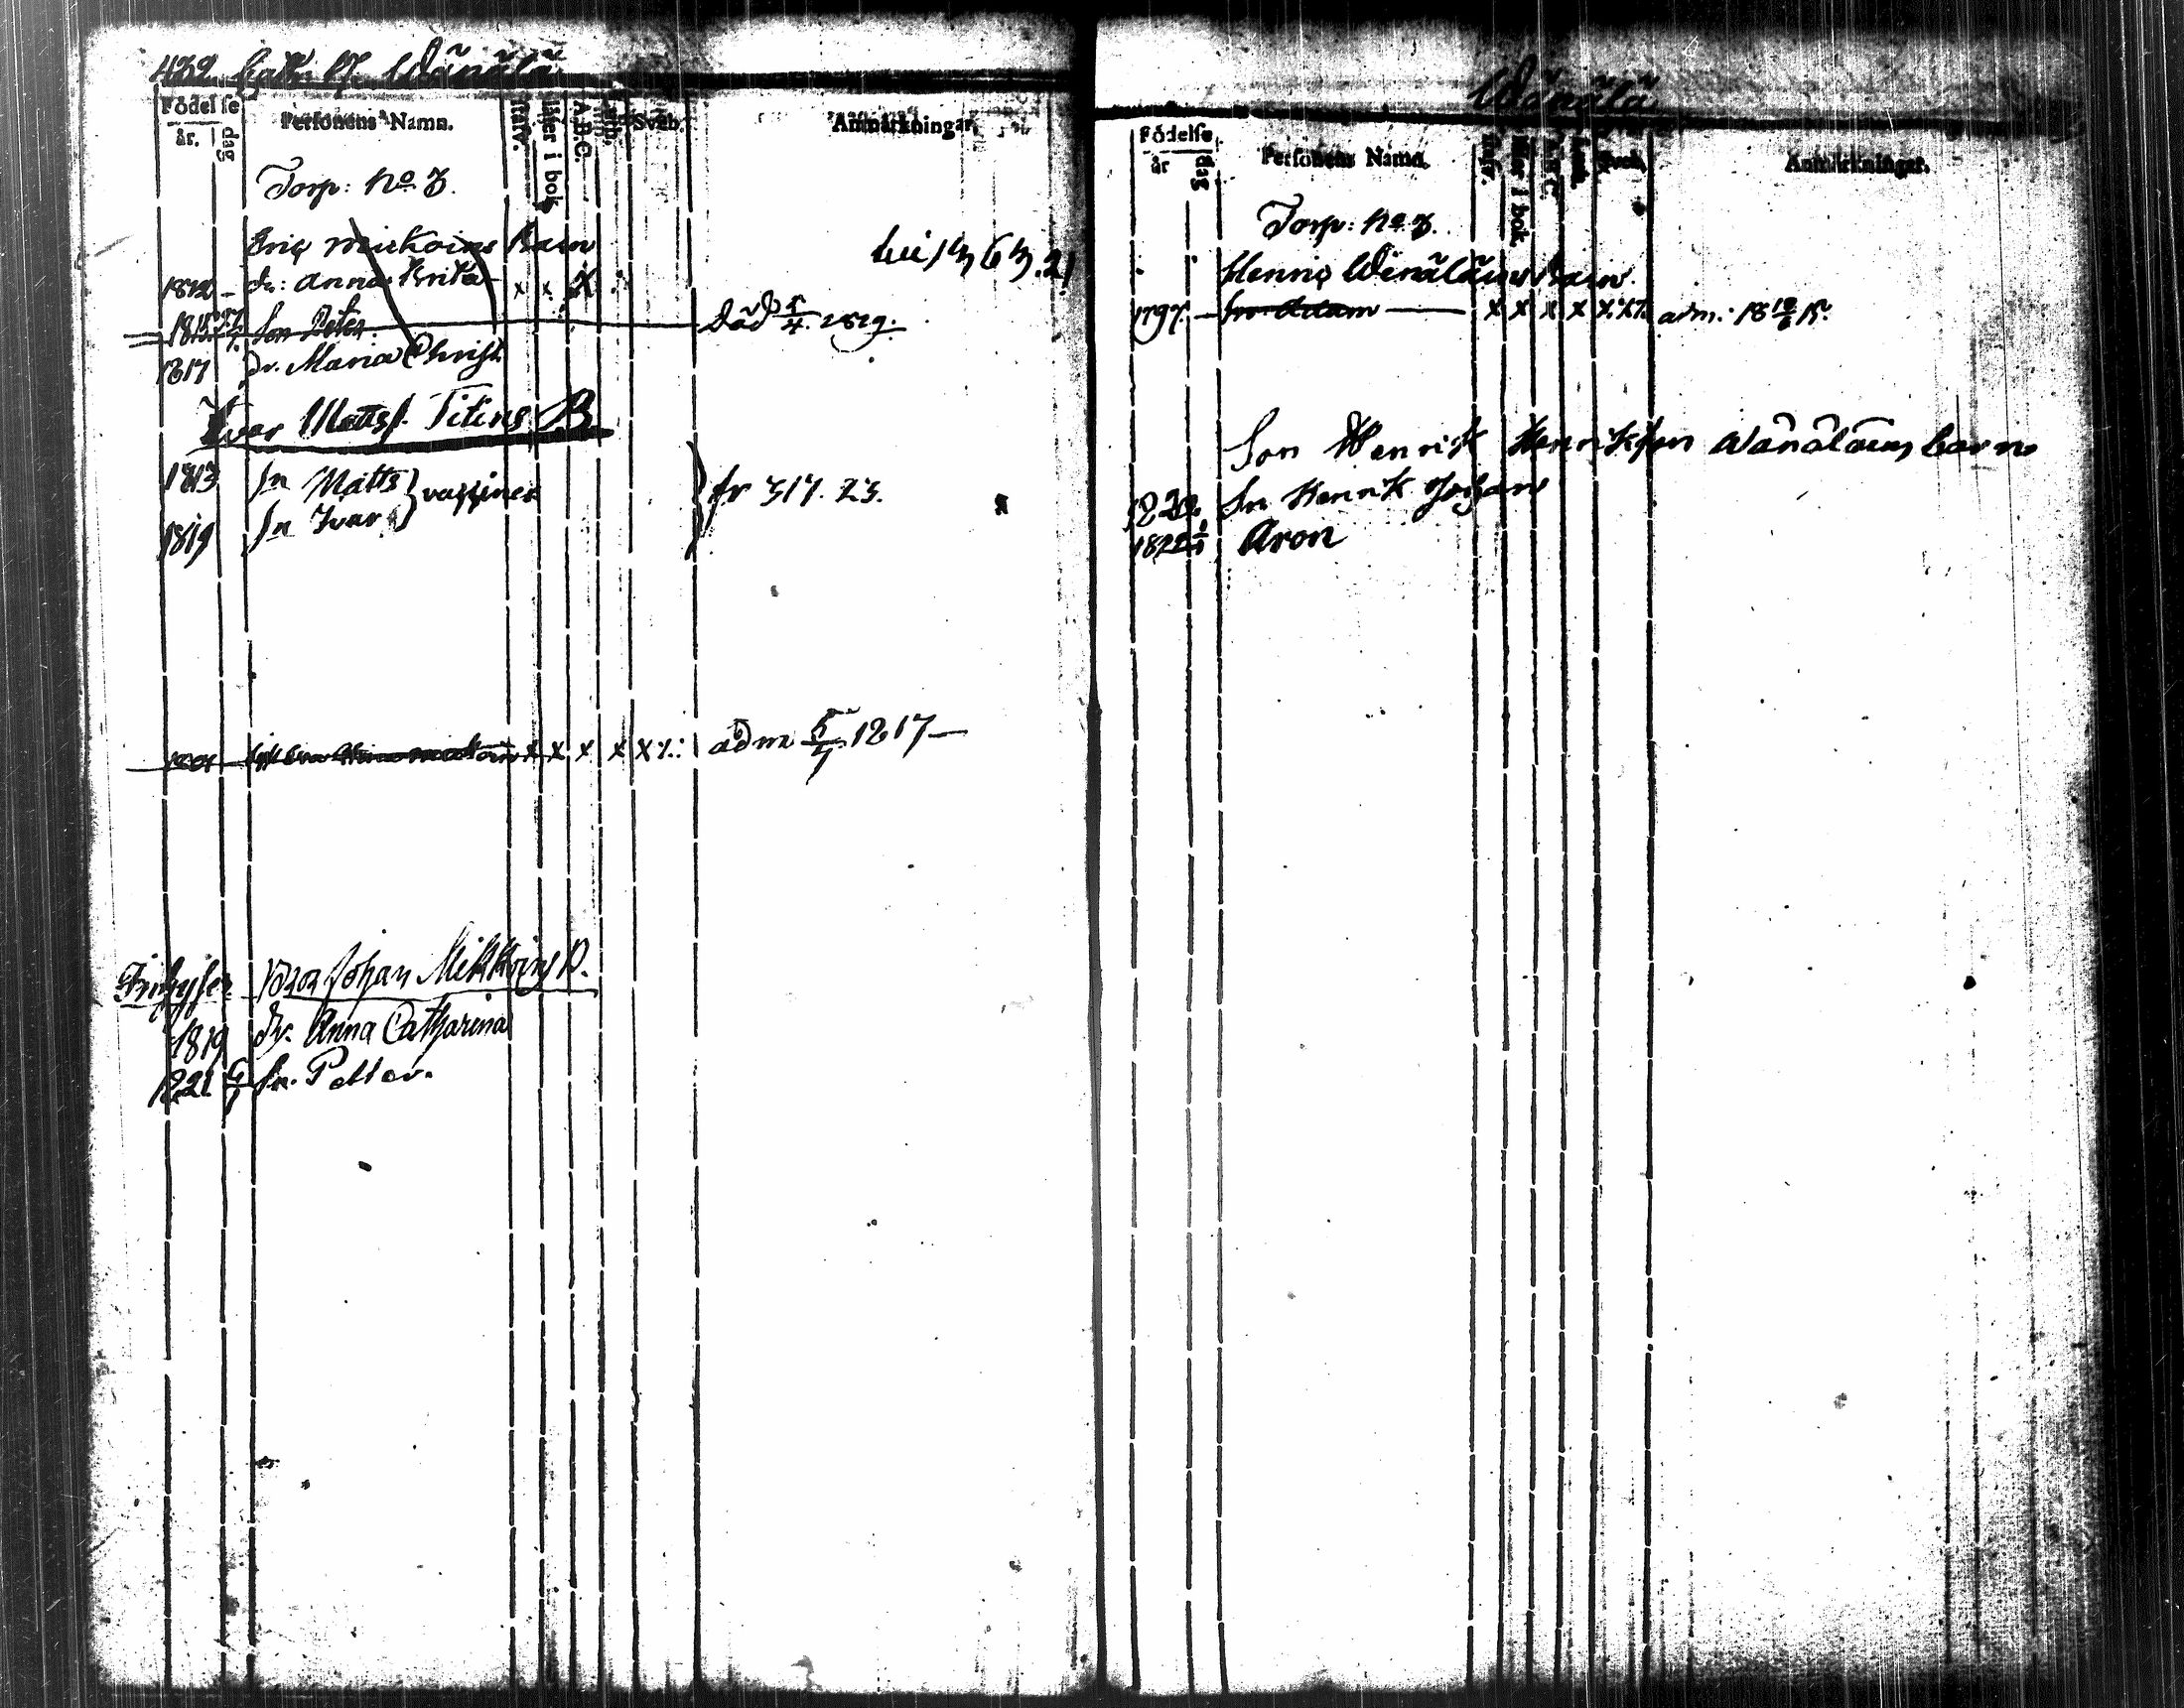 432 Wänälä
Födelse
år. dag
Personens Namn.
stafv.
läser i bok
A.B.C.
Sveb.
Anmärkningar.
Torp: No 7.
Eric Mickoins Barn
1812 - dr: Anna Brita x x x
1815 27 Son Peter. död 5/4 1829.
1817 dr. Maria Christ.
Ivar Mattss. Titins B
1813 Sn Matts } vaxxiner
1819 Sn Ivar
fr 317. 23.
x x x x x adm 5/7 1817
Inhyses Johan Mikkoins B.
1819 dr. Anna Catharina
1821 6/7 Sn. Petter.
Wänälä
Födelse
år dag
Personens Namn.
i bok
Anmärkningar.
Torp: No 7.
Henric Wänäläins Barn.
1797. - Sn Adam x x x x x adm: 18 15.
Son Henrik Henriksson Wänäläins barn
1820 Sn Henrik Johan
1822 Aron